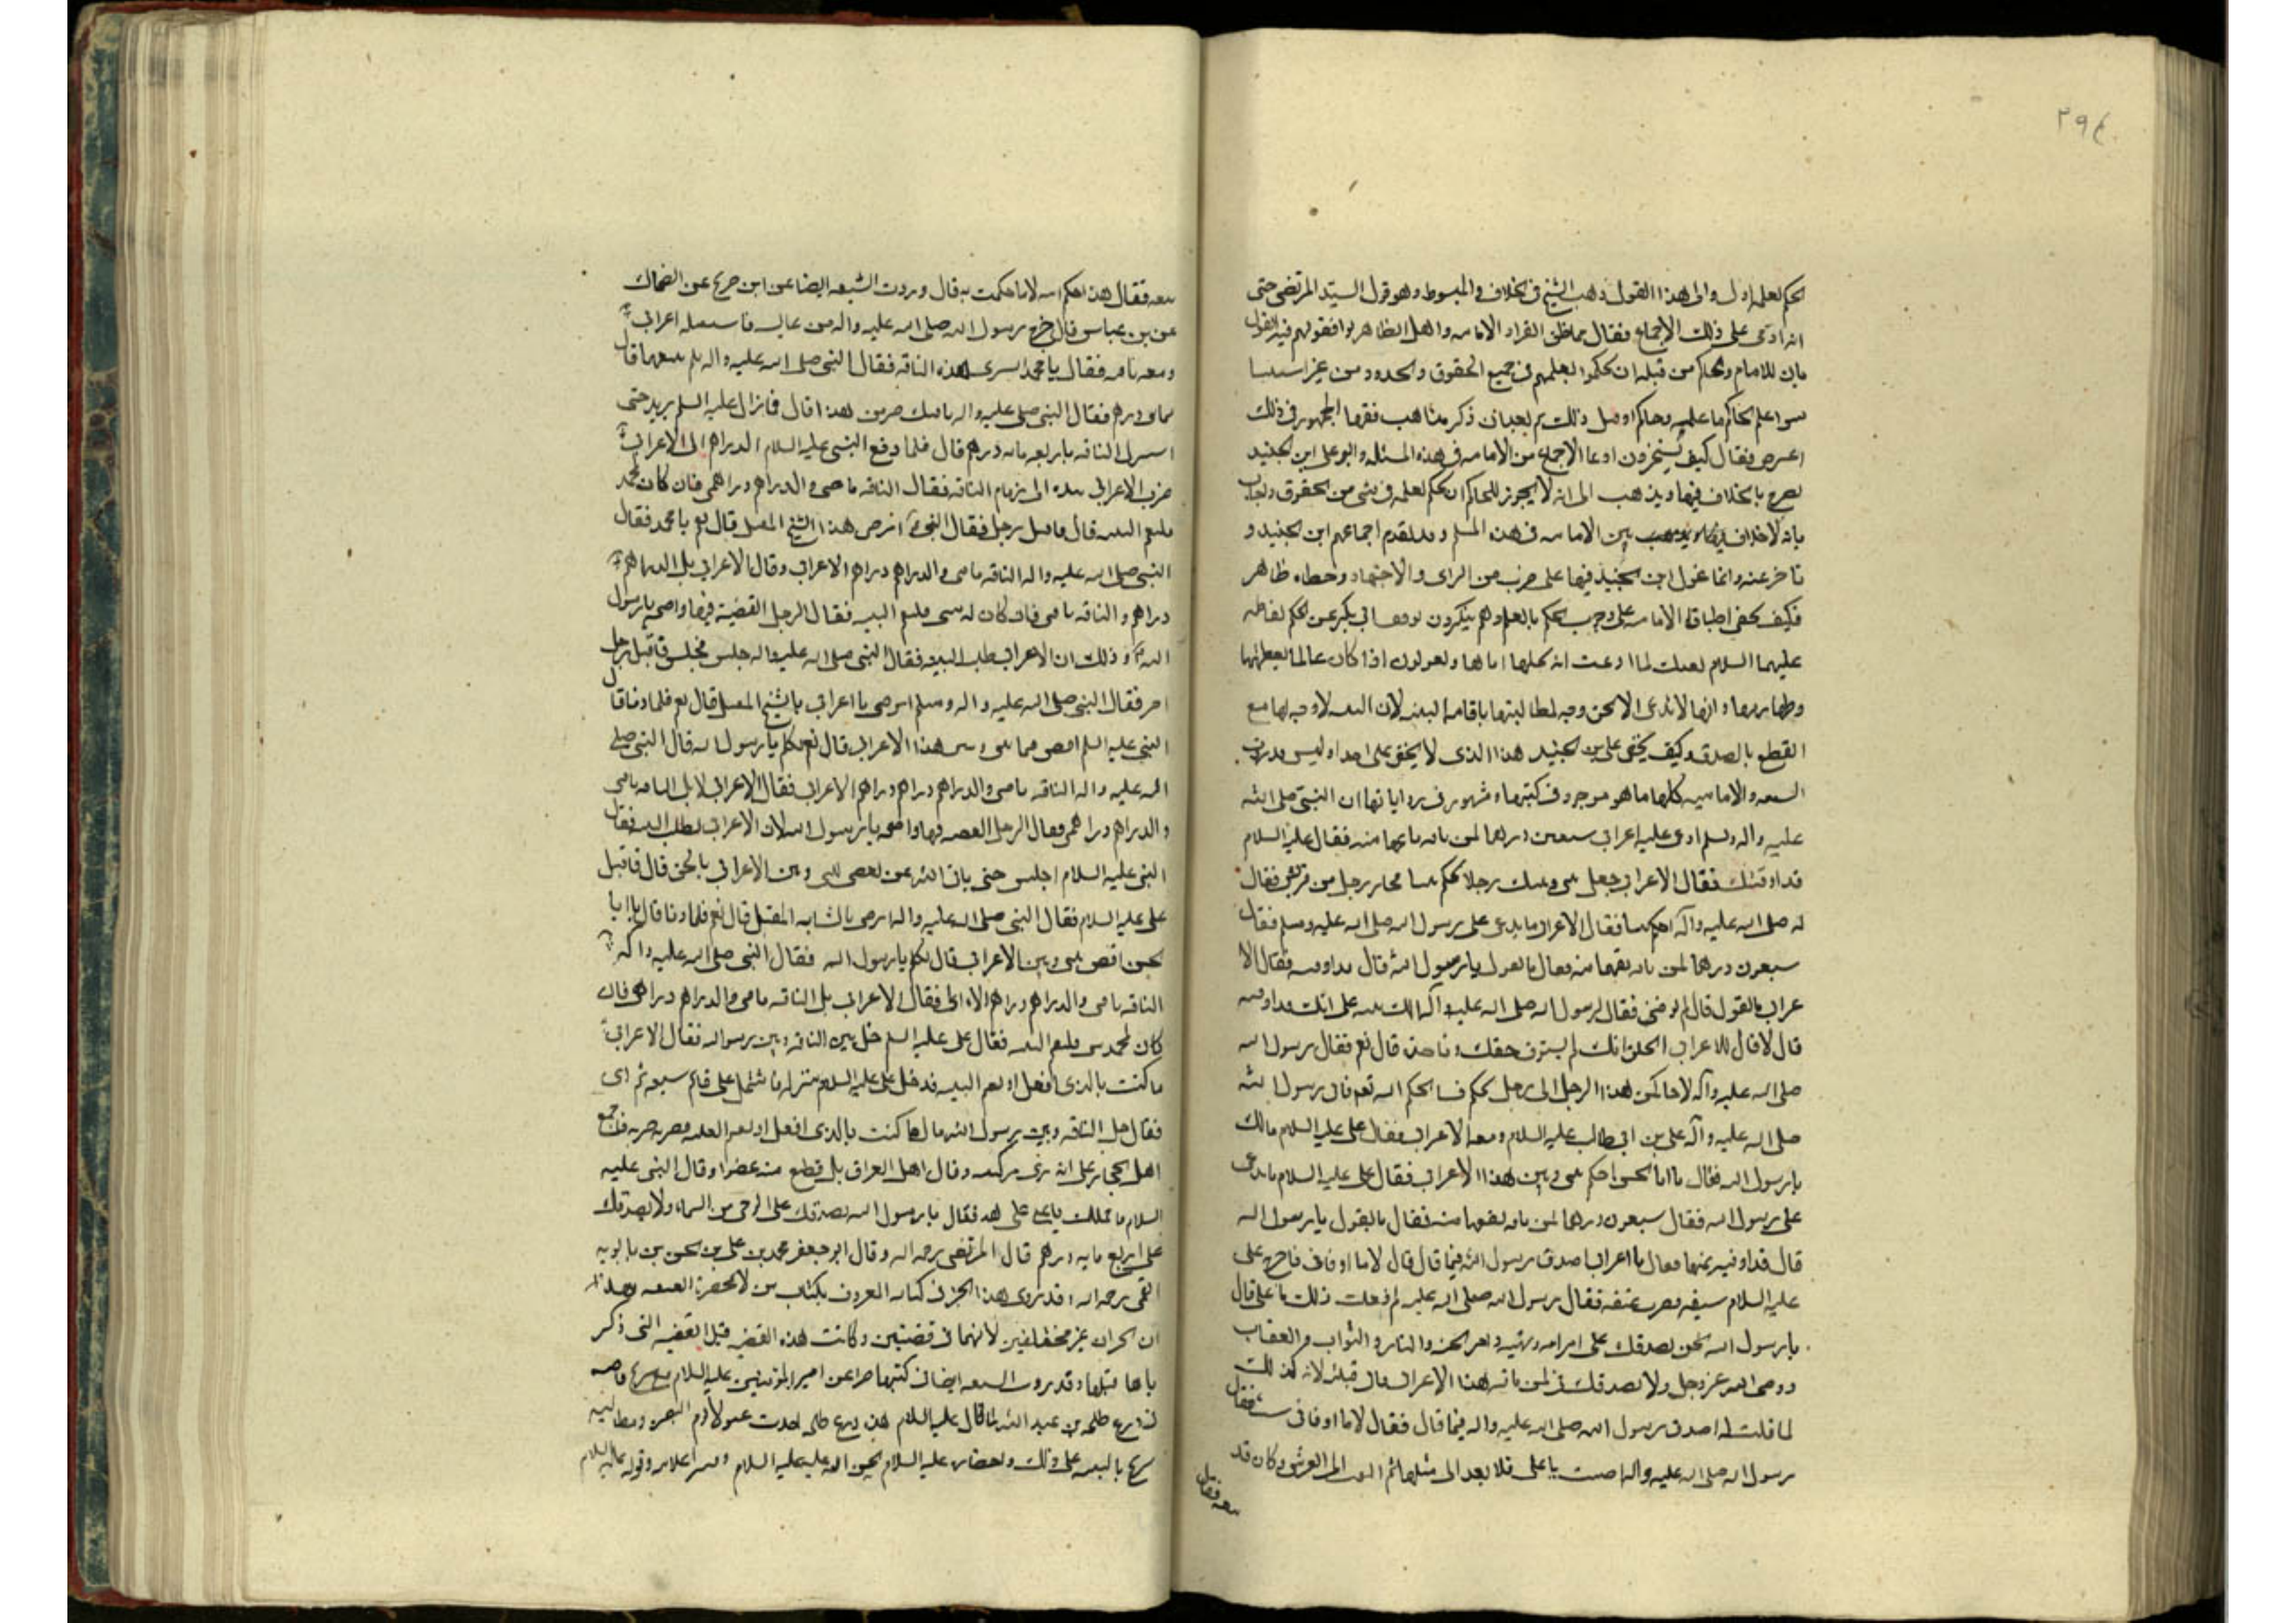 ٢٩٤
الحكم لعلمه اول والى هذا القول ذهب الشيخ فى الخلاف والمبسوط وهو قول السيد المرتضى حتى
انه ادعى على ذلك الاجماع فقال مما ظن انفراد الامامه واهل الظاهر يوافقونهم فيه القول
بان للامام والحكام من قبله ان يحكموا بعلمهم فى جميع الحقوق والحدود من غير استثنا
سوا علم الحاكم ما علمه وهو حاكم او قبل ذلك ثم بعد ان ذكر مذاهب فقها الجمهور فى ذلك
اعترض فقال كيف تستجيزون ادعا الاجماع من الامامه فى هذه المسئله وابو على ابن الجنيد
يصرح بالخلاف فيها ويذهب الى انه لا يجوز للحاكم ان يحكم بعلمه فى شى من الحقوق
بانه لا خلاف بين الامامه فى هذه المسله وقد تقدم اجماعهم ابن الجنيد و
تاخر عنه وانما عول ابن الجنيد فيها على ضرب من الراى والاجتهاد وخطاه ظاهر
فكيف يخفى اطباق الامامه على وجوب الحكم بالعلم وهم ينكرون توقف ابى بكر عن الحكم لفاطمه
عليهما السلام لما ادعت انه نحلها اباها ويقولون اذا كان عالما بعصمتها
وطهارتها وانها لا تدعى الا الحق وجه لمطالبتها باقامه البينه لان البينه لا وجه لها مع
القطع بالصدق وكيف يخفى على بن الجنيد هذا الذى لا يخفى على احد اوليس قد روت
الشيعه الاماميه كلها ما هو موجود فى كتبها ومشهور فى رواياتها ان النبى صلى الله
عليه واله وسلم ادعى عليه اعرابى سبعين درهما ثمن ناقه باعها منه فقال عليه السلام
قد اوفيتك فقال الاعرابى جعل بينى وبينك رجلا يحكم بيننا فجا رجل من قريش فقال
له صلى الله عليه وآله احكم بيننا فقال للاعرابى ما تدعى على رسول الله صلى الله عليه وسلم فقال
سبعون درهما ثمن ناقه بعتها منه فقال ما تقول يا رسول الله قال قد اوفيته فقال للا
عرابى ما تقول قال لم يوفنى فقال لرسول الله صلى الله عليه وآله الك بينه على انك قد اوفيته
قال لا قال للاعرابى اتحلف انك لم تستوف حقك وتاخذه قال نعم فقال رسول الله
صلى الله عليه وآله لاحاكمن هذا الرجل الى رجل يحكم فينا بحكم الله نعم فاتى رسول الله
صلى الله عليه وآله على بن ابى طالب عليه السلام ومعه الاعرابى فقال على عليه السلام مالك
يا رسول الله فقال يا ابا الحسن احكم بينى وبين هذا الاعرابى فقال على عليه السلام ما تدعى
على رسول الله فقال سبعون درهما ثمن ناقه بعتها منه فقال ما تقول يا رسول الله
قال قد اوفيته ثمنها فقال يا اعرابى اصدق رسول الله فيما قال قال لا ما اوفانى فاخرج على
عليه السلام سيفه فضرب عنقه فقال رسول الله صلى الله عليه لم فعلت ذلك يا على قال
يا رسول الله نحن نصدقك على امر الله ونهيه وامر الجنه والنار والثواب والعقاب
ووحى الله عز وجل ولا نصدقك فى ثمن ناقه هذا الاعرابى وانى قتلته لانه كذبك
لما قلت له اصدق رسول الله صلى الله عليه واله فيما قال فقال لا ما اوفانى فقال
رسول الله صلى الله عليه واله اصبت يا على فلا تعد الى مثلها ثم التفت الى القرشى وكان قد
تبعه فقال
تبعه فقال هذا حكم الله لا ما حكمت به قال وروت الشيعه ايضا عن ابن جريج عن الضحاك
عن بن عباس قال خرج رسول الله صلى الله عليه واله من فاستقبله اعرابى
ومعه ناقه فقال يا محمد تشترى هذه الناقه فقال النبى صلى الله عليه واله بكم تبيعها قال
بمايتى درهم فقال النبى صلى عليه واله ناقتك خير من هذا قال فما زال عليه السلم يزيد حتى
اشترى الناقه باربعه مائه درهم قال فلما دفع النبى عليه السلام الدراهم الى الاعرابى
ضرب الاعرابى يده الى زمام الناقه فقال الناقه ناقتى والدراهم دراهمى فان كان لمحمد
فليقم البينه قال فاقبل رجل فقال النبى اترضى هذا الشيخ المقبل قال نعم يا محمد فقال
النبى صلى الله عليه واله الناقه ناقتى والدراهم دراهم الاعرابى وقال الاعرابى بل الدراهم
دراهمى والناقه ناقتى فان كان له شى فليقم البينه فقال الرجل القضية فيها واضحه يا رسول
الله وذلك ان الاعرابى طلب البينه فقال النبى صلى الله عليه واله جلس فجلس فاقبل رجل
اخر فقال النبى صلى الله عليه واله وسلم اترضى يا اعرابى بالشيخ المقبل قال نعم فلما دنا قال
النبى عليه السلم اقض فيما بينى وبين هذا الاعرابى قال تكلم يا رسول الله قال النبى صلى
الله عليه واله الناقه ناقتى والدراهم دراهم الاعرابى فقال الاعرابى لا بل الناقه ناقتى
والدراهم دراهمى فقال الرجل القضيه فيها واضحه يا رسول الله لان الاعرابى يطلب البينه فقال
النبى عليه السلام اجلس حتى ياتى الله بمن يقضى بينى وبين الاعرابى بالحق قال فاقبل
على عليه السلام فقال النبى صلى الله عليه واله اترضى بالشاب المقبل قال نعم فلما دنا قال يا ابا
الحسن اقض بينى وبين الاعرابى قال تكلم يا رسول الله فقال النبى صلى الله عليه واله
الناقه ناقتى والدراهم دراهم الاعرابى فقال الاعرابى بل الناقه ناقتى والدراهم دراهمى فان
كان لمحمد شى فليقم البينه فقال على عليه السلم خل بين الناقه وبين رسول الله فقال الاعرابى
ما كنت بالذى افعل او يقم البينه فدخل على عليه السلام منزله فاشتمل على قائم سيفه ثم اتى
فقال خل الناقه وبين رسول الله قال ما كنت بالذى افعل او يقم البينه فضربه ضربه فاجمع
اهل الحجاز على انه رمى براسه وقال اهل العراق بل قطع منه عضوا وقال النبى عليه
السلام ما حملك يا على على هذا فقال يا رسول الله نصدقك على الوحى من السماء ولا نصدقك
على اربع مايه درهم قال المرتضى رحمه الله وقال ابو جعفر محمد بن على بن الحسن بن بابويه
القمى رحمه الله وقد روى هذا الخبر فى كتابه المعروف بكتاب من لا يحضره الفقيه هذان
الخبران غير مختلفين لانهما فى قضيتين وكانت هذه القضيه قبل القضيه التى ذكر
ناها قبلها وقد روت الشيعه ايضا فى كتبها خبرا عن امير المؤمنين عليه السلام مع شريح قاضيه
فى درع طلحه بن عبد الله لما قال عليه السلام هذه درع طلحه اخذت غلولا يوم البصره ومطالبه
شريح بالبينه على ذلك عليه السلام عليه السلام وقوله عليه السلام